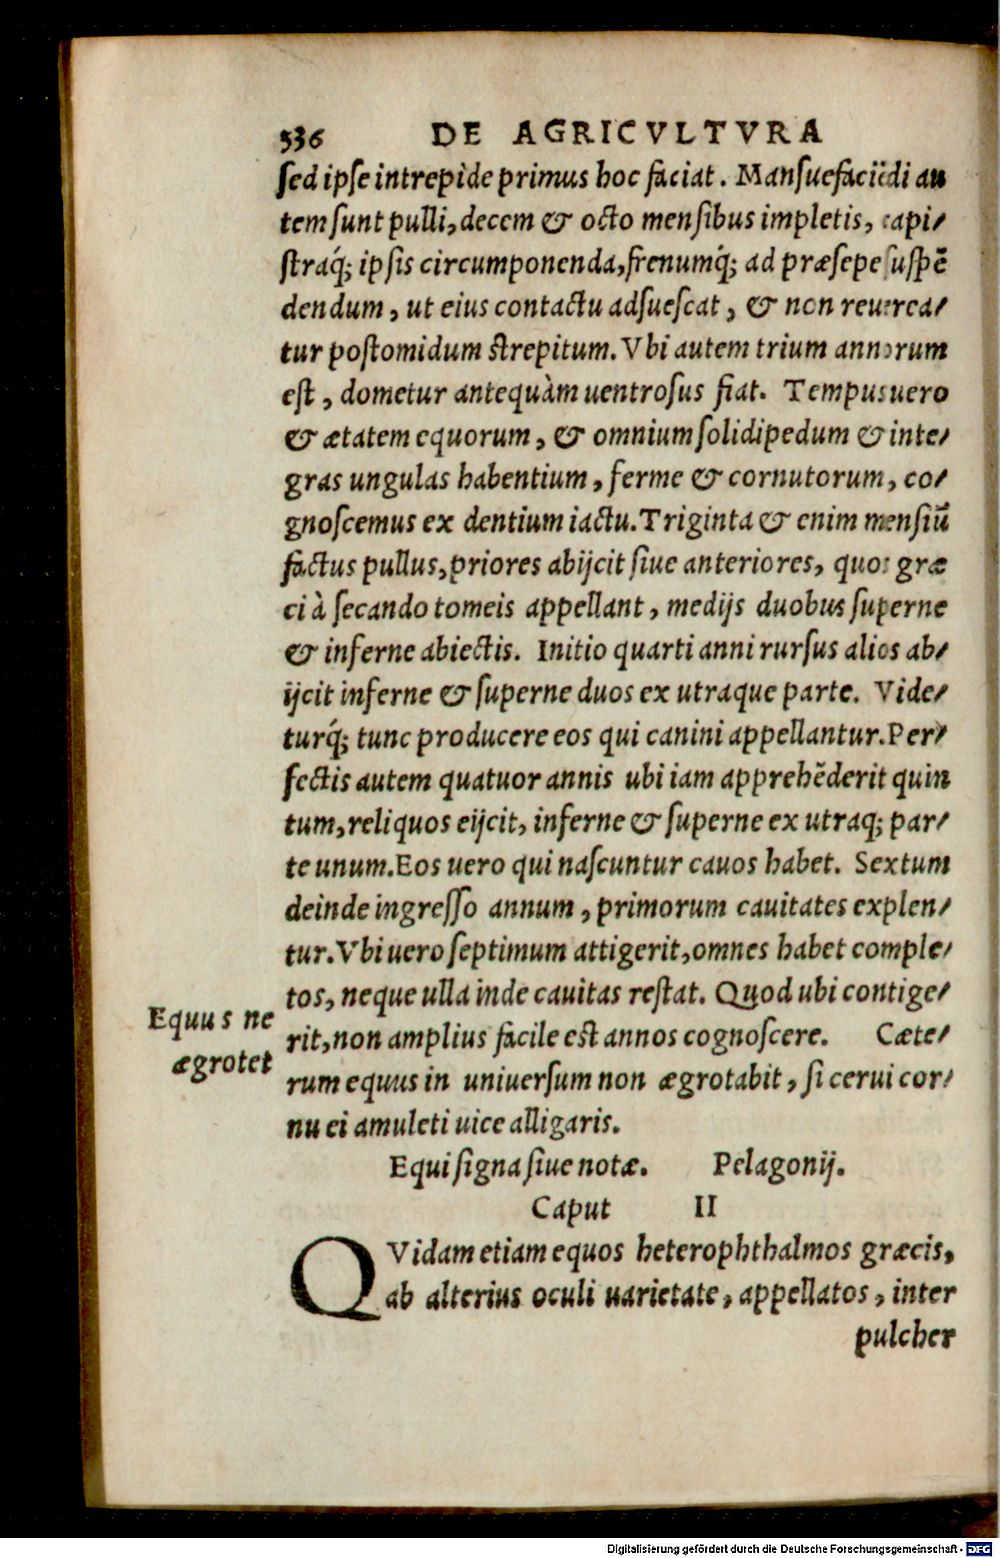 536 DE AGRICVLTVRA
sed ipse intrepìde primus hoc faciat. Mansuefaciēdi au
tem sunt pulli, decem & octo mensibus impletis, capi-
straq́; ipsis circumponenda, frenumq́; ad præsepe suspē
dendum, ut eius contactu adsuescat, & non reuerea-
tur postomidum strepitum. Vbi autem trium annorum
est, dometur antequàm uentrosus fiat. Tempus uero
& ætatem equorum, & omnium solidipedum & inte-
gras ungulas habentium, ferme & cornutorum, co-
gnoscemus ex dentium iactu. Triginta & enim mensiū
factus pullus, priores abijcit siue anteriores, quos græ
ci à secando tomeis appellant, medijs duobus superne
& inferne abiectis. Initio quarti anni rursus alios ab-
ijcit inferne & superne duos ex utraque parte. Vide-
turq́; tunc producere eos qui canini appellantur. Per-
fectis autem quatuor annis ubi iam apprehēderit quin
tum, reliquos eijcit, inferne & superne ex utraq; par-
te unum. Eos uero qui nascuntur cauos habet. Sextum
deinde ingresso annum, primorum cauitates explen-
tur. Vbi uero septimum attigerit, omnes habet comple-
tos, neque ulla inde cauitas restat. Quod ubi contige-
rit, non amplius facile est annos cognoscere. Cæte-
rum equus in uniuersum non ægrotabit, si cerui cor-
nu ei amuleti uice alligaris.
Equus ne
ægrotet
Equi signa siue notæ. Pelagonij.
Caput II
QVidam etiam equos heterophthalmos græcis,
ab alterius oculi uarietate, appellatos, inter
pulcher
Digitalisierung gefördert durch die Deutsche Forschungsgemeinschaft - DFG